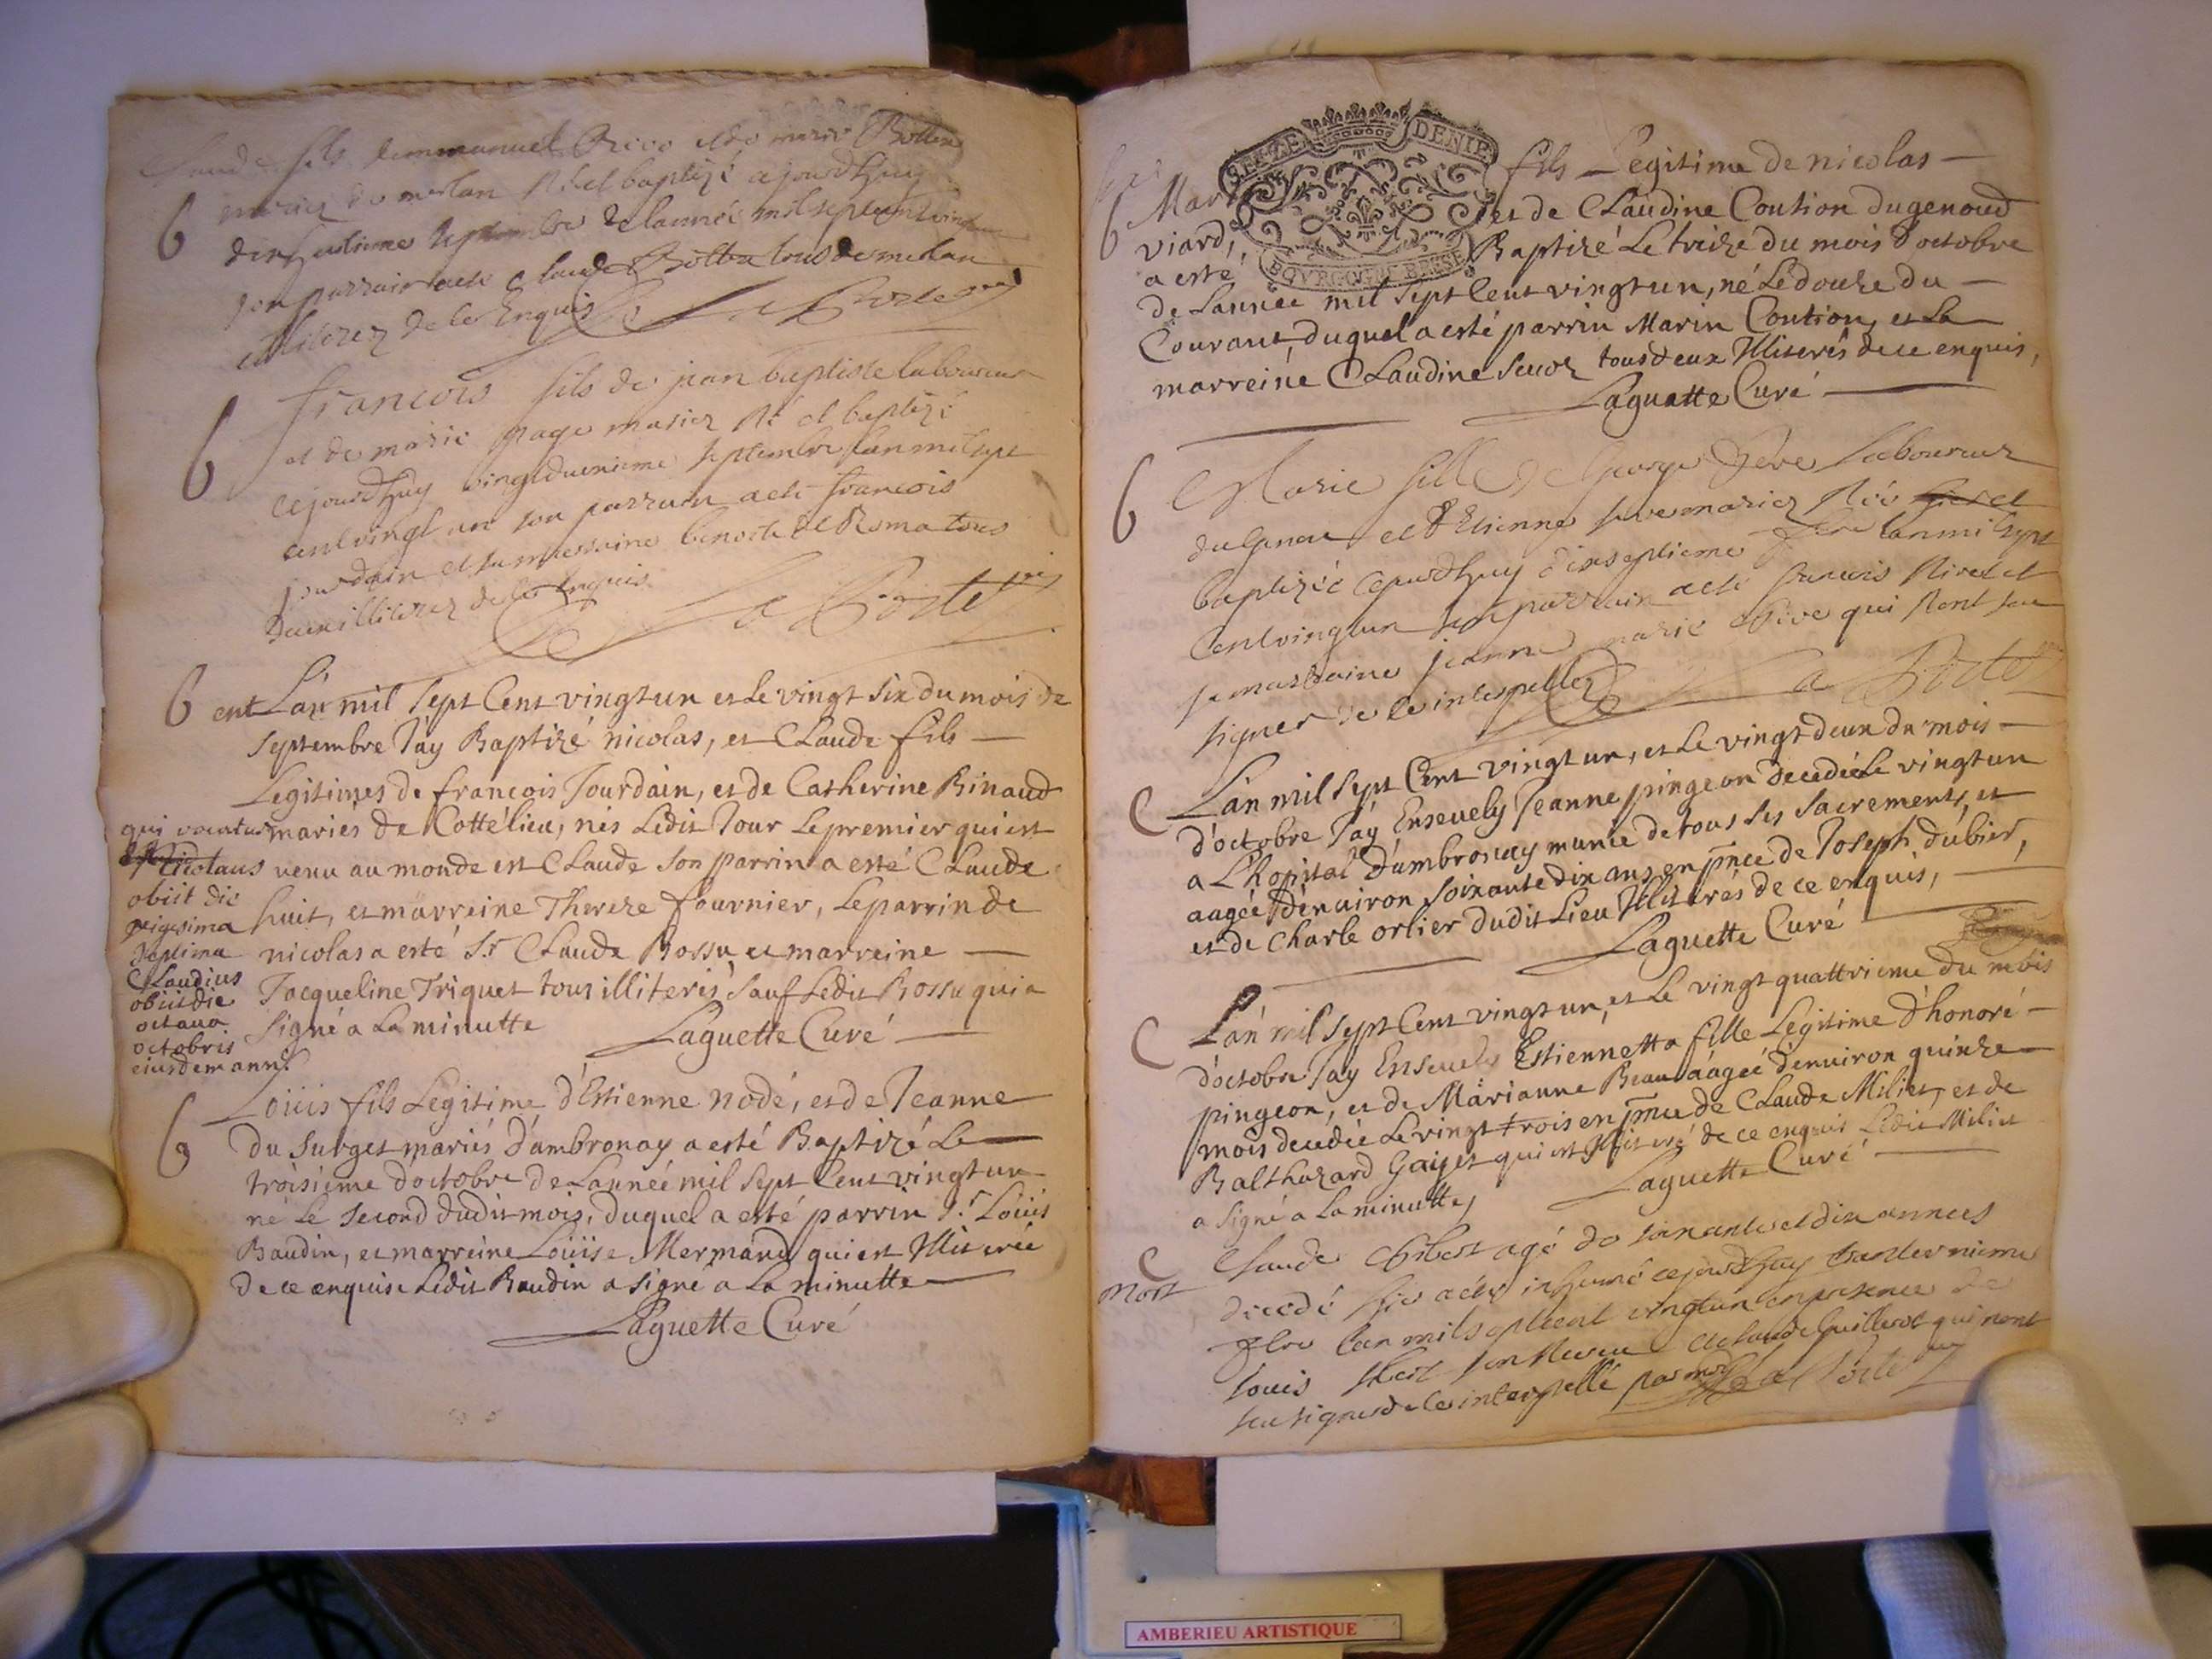 Claude fils demmanuel et de marie
mariez de merlan Né et baptizé cejourdhuy
6
dixhuitieme septembre de lannée mil sept cent vingt un
son parrain acte claude tous de merlan
illiterez de ce Enquis
6
francois fils de jean baptiste laboureur
et de marie page mariez Né et baptizé
cejourdhuy vingtdeuxieme septembre lan mil sept
cent vingt un son parrain acte francois
jourdain et sa marraine benoite tous
deux illiterez de ce Enquis
6
ent Lan mil sept Cent vingt un et le vingt six du mois de
septembre J'ay Baptizé nicolas, et Claude fils
Legitimes de francois Jourdain, et de Catherine Rinaud
mariés de Cottélieu, nés Ledit Jour Lepremier qui est
venu au monde est Claude son parrin a esté Claude
huit, et marreine Thereze fournier, Leparrin de
nicolas a esté Sr. Claude Bossu et marreine
Jacqueline Triquet tous illiterés sauf Ledit Bossu qui a
signé a La minutte
Laguette Curé
qui vocatur
Nicolaus
obiit die
vigesima
septima
Claudius
obiit die
octava
octobris
eiusdem anni
6
Loüis fils Legitime d'Estienne nodé, et de Jeanne
du Surget mariés d'ambronay a esté Baptizé Le
troisieme d'octobre de Lannéé mil sept Cent vingt un
né Le second dudit mois, duquel a esté parrin Sr. Loüis
Baudin, et marreine Loüise Mermand qui est Illiterée
de ce enquise Ledit Baudin a signé a La minutte
Laguette Curé
SEIZE DENIE
BOVRGOGNE BRESSE
6
fils Legitime de nicolas
viard, et de Claudine Coution dugenoud
a esté Baptizé Le treize du mois d'octobre
de Lannéé mil sept Cent vingt un, né Le douze du
Courant, duquel a esté parrin Marin Coution, et La
marreine Claudine tous deux Illiterés de ce enquis,
Laguette Curé
6
Marie fille de George laboureur
et Etienne mariez Née
baptizée cejourdhuy dixseptieme lan mil sept
cent vingt un son parrain acte francois Nivet et
sa marraine jeanne marie qui nont seu
signer de ce interpellez
C
Lan mil sept Cent vingt un, et Le vingt deux du mois
d'octobre J'ay Enseuely Jeanne pingeon decedéé Le vingt un
a L'hopital d'ambronay munie de tous ses sacrements, et
aagéé d'enuiron soixante dix ans en pñce de Joseph dubier,
et de Charle orlier dudit Lieu Illiterés de ce enquis,
Laguette Curé
C
Lan mil sept Cent vingt un, et Le vingt quattrieme du mois
d'octobre J'ay Enseuely Estiennette fille Legitime d'honoré
pingeon, et de Marianne Beau aagéé d'enuiron quinze
mois decedéé Le vingt trois en pñce de Claude Miliet, et de
Balthazard Gayet qui est Illiteré de ce enquis Ledit Miliet
a signé a La minutte,
Laguette Curé
C
mort
Claude agé de soixante et dix annees
decedé hier a été inhumé cejourdhuy trente unieme
lan mil sept cent vingt un en presence de
Louis son neveu et claude Guillerot qui nont
seu signer de ce interpellé par moy
AMBERIEU ARTISTIQUE